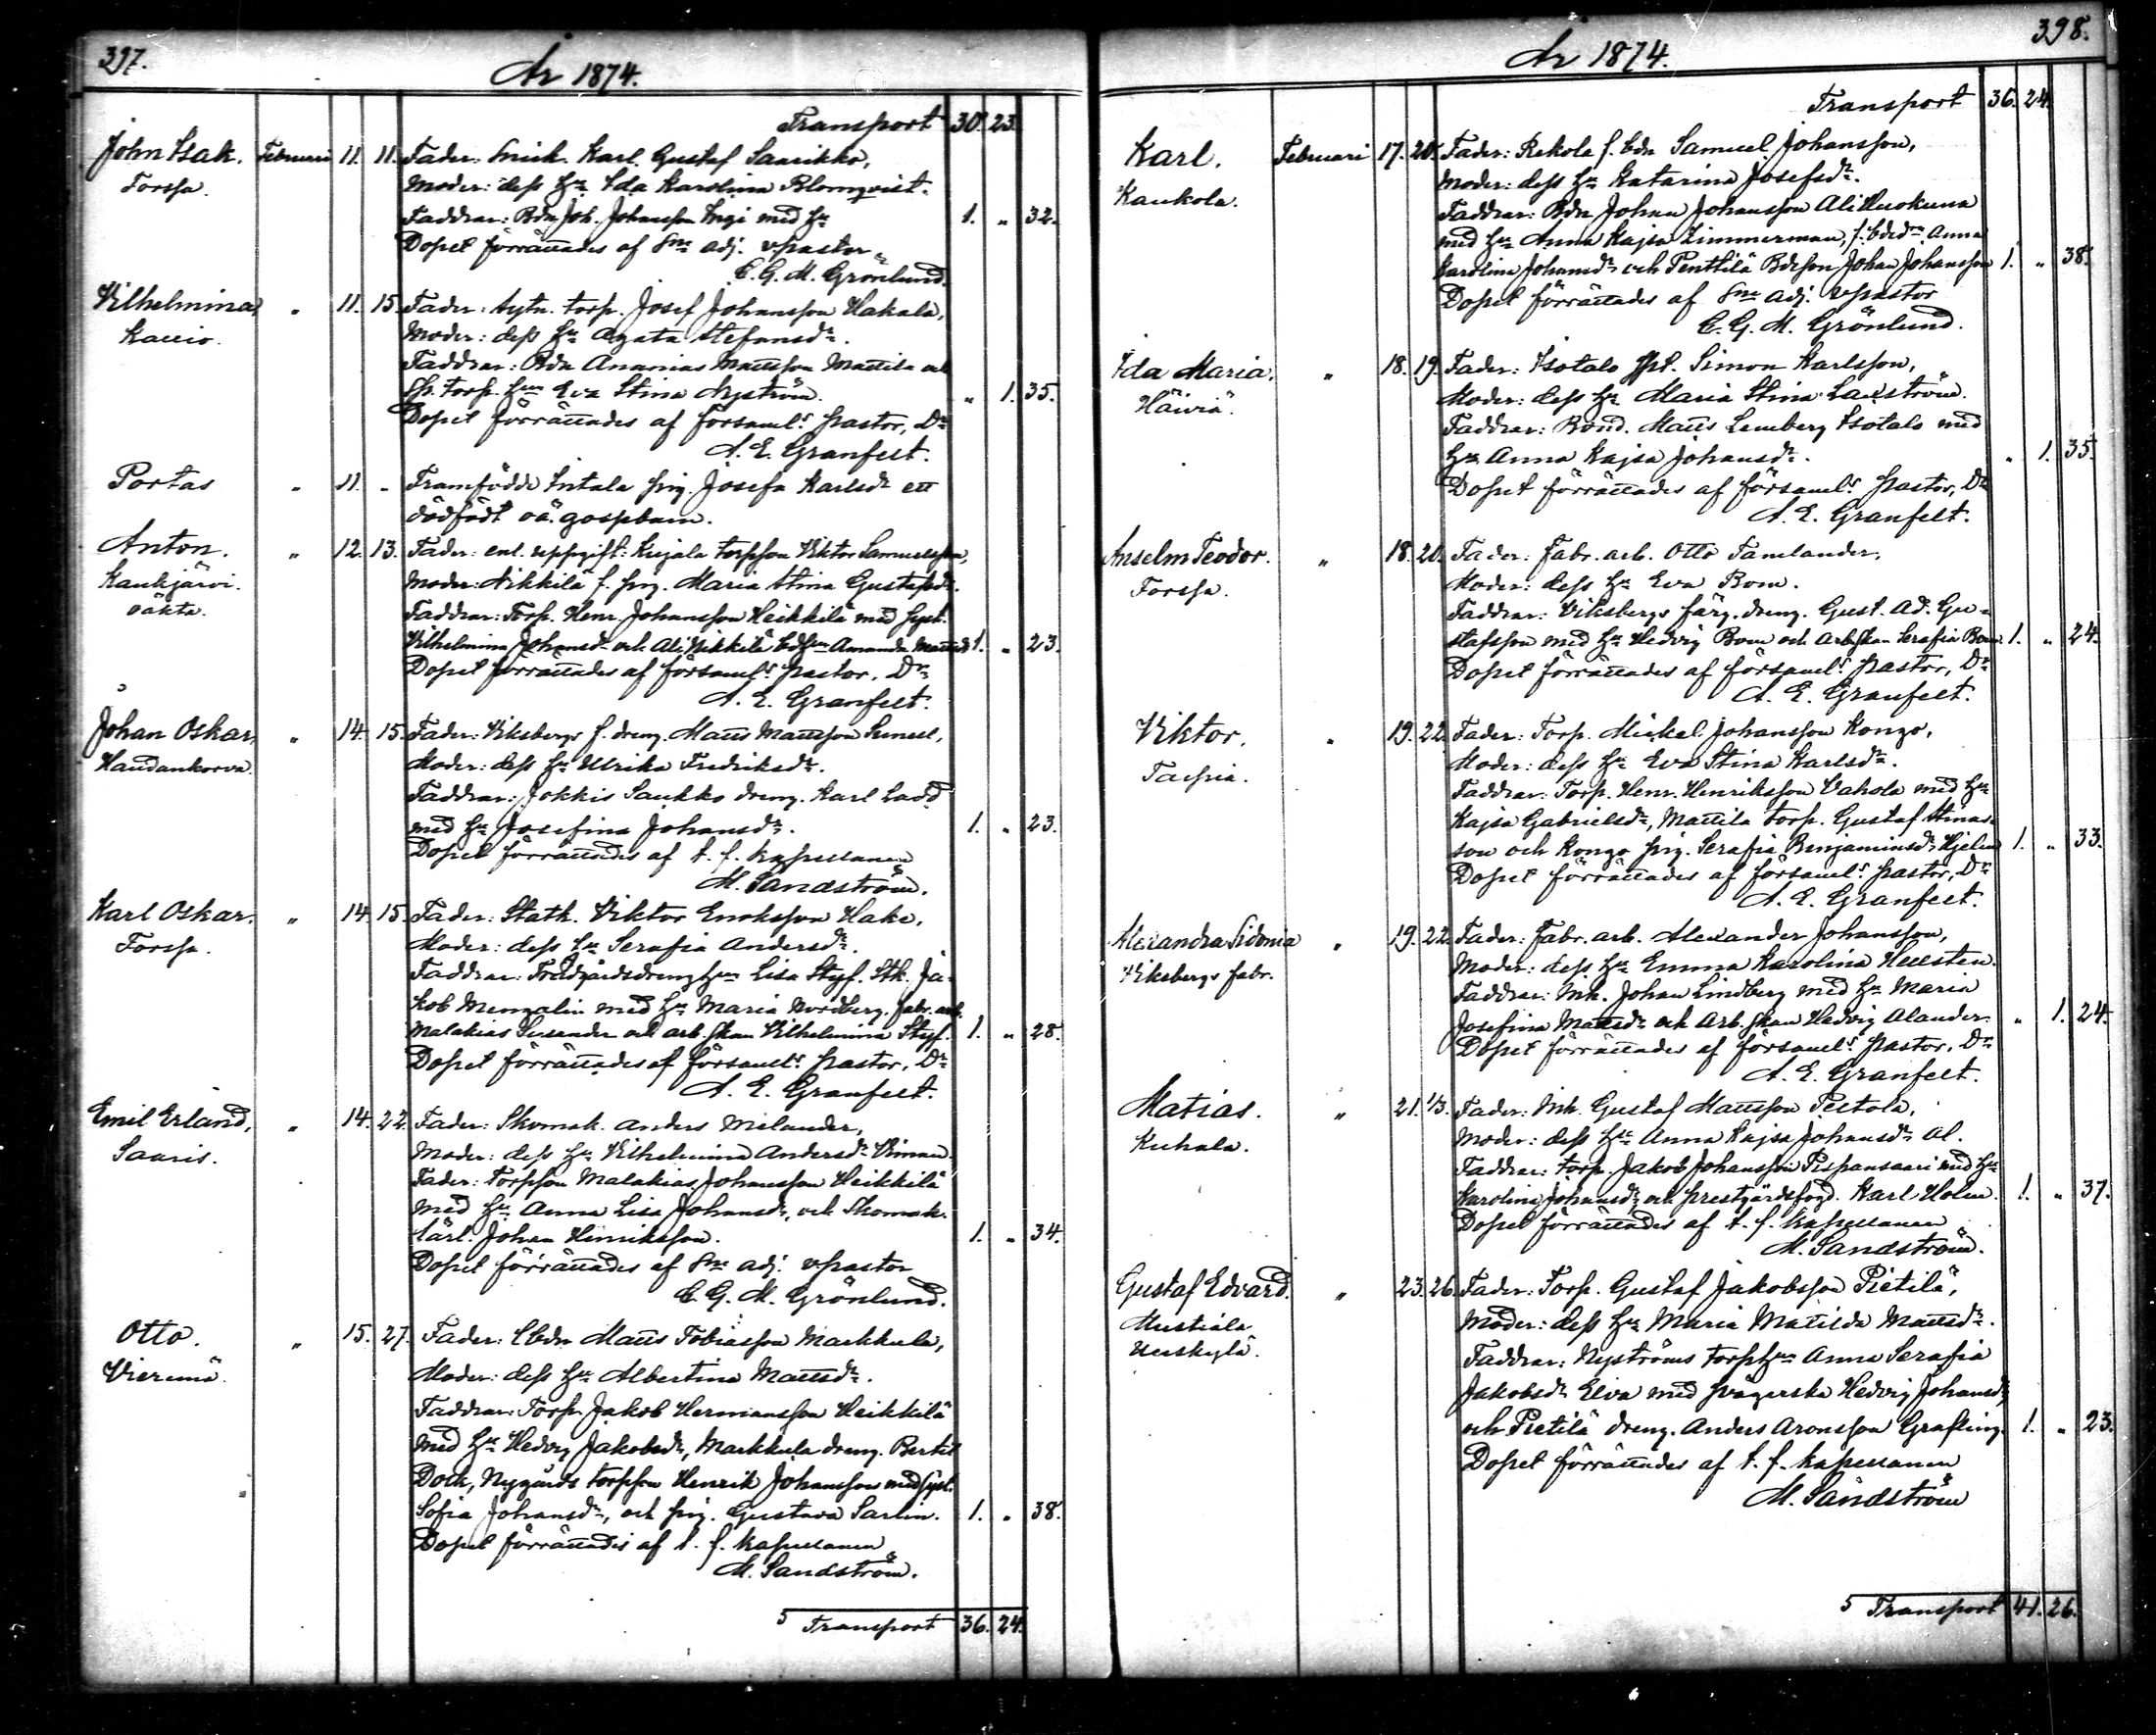 397.
År 1874.
Transport 30. 23.
John Isak. Februari 11. 11. Fader: Smeden Karl Gustaf Saarikko,
Forssa. Moder: dess hu Ida Karolina Blomqvist.
Faddrar: Bdn Joh. Johansson Ingi med hu 1. " 32.
Dopet förrättades af Sne adj. vpastor
C. G. M. Grönlund.
Vilhelmina, " 11. 15. Fader: torp. Josef Johansson Hakala,
Kallio. Moder: dess hu Agata Stefansdr.
Faddrar: Bdn Ananias Mattsson Mattila och
torp. hun Eva Stina Nyström. " 1. 35.
Dopet förrättades af församls pastor, Dr
A. E. Granfelt.
Portas " 11. " Framfödde Intala pig. Josefa Karlsdr ett
dödfödt oä. gossebarn.
Anton. " 12. 13. Fader: enl. uppgift: Kujala torpson Viktor Samuelsson,
Kaukjärvi. Moder: Nikkilä f. pig. Maria Stina Gustafsdr.
oäkta. Faddrar: Torp. Henr. Johansson Heikkilä med syst.
Vilhelmina Johansdr och Ali Nikkilä bdhun Amanda Mattsdr 1. " 23.
Dopet förrättades af församls pastor, Dr
A. E. Granfelt.
Johan Oskar, " 14. 15. Fader: Viksbergs f. dreng. Matts Mattsson Sunell,
Haudankorva. Moder: dess hu Ulrika Fredriksdr.
Faddrar: Jokkis Saukko dreng. Karl Ladd
med hu Josefina Johansdr. 1. " 23.
Dopet förrättades af t. f. kapellanen
M. Sandström.
Karl Oskar. " 14. 15. Fader: Stath. Viktor Enoksson Hake,
Forssa. Moder: dess hu Serafia Andersdr.
Faddrar: Trädgårdsdrenghun Lisa Styf. Stk. Ja-
kob Mengalin med hu Maria Nordberg, fabr. arb.
Malakias Selander och arb. skan Vilhelmina Styf. 1. " 28.
Dopet förrättades af församls pastor, Dr
A. E. Granfelt.
Emil Erland, " 14. 22. Fader: Skomak. Anders Milander,
Saaris. Moder: dess hu Vilhelmina Andersdr Viman.
Fader: torpson Malakias Johansson Heikkilä
med hu Anna Lisa Johansdr, och Skomak.
lärl. Johan Henriksson. 1. " 34.
Dopet förrättades af Sne adj. vpastor
C. G. M. Grönlund.
Otto. " 15. 27. Fader: Bdn Matts Tobiasson Markkula,
Vieremä. Moder: dess hu Albertina Mattsdr.
Faddrar: Torp. Jakob Hermansson Heikkilä
med hu Hedvig Jakobsdr, Markkula dreng. Bertil
Dock, Nygårds torpson Henrik Johansson med syst.
Sofia Johansdr, och pig. Gustava Sarlin. 1. " 38.
Dopet förrättades af t. f. kapellanen
M. Sandström.
5 Transport 36. 24.
398.
År 1874.
Transport 36. 24.
Karl. Februari 17. 20. Fader: Rekola f. bdn Samuel Johansson,
Kaukola. Moder: dess hu Katarina Josefsdr.
Faddrar: Bdn Johan Johansson Ali Huokuna
med hu Anna Kajsa Zimmerman, f. bdedn Anna
Karolina Johansdr och Penttilä Bdeson Johan Johansson 1. " 38.
Dopet förrättades af Sne adj. vpastor
C. G. M. Grönlund.
Ida Maria. " 18. 19. Fader: Isotalo Simon Karlsson,
Häiviä. Moder: dess hu Maria Stina Laxström.
Faddrar: Bond. Matts Lemberg Isotalo med
hu Anna Kajsa Johansdr. " 1. 35.
Dopet förrättades af församls pastor, Dr
A. E. Granfelt.
Anselm Teodor. " 18. 20. Fader: Fabr. arb. Otto Tamlander,
Forssa. Moder: dess hu Eva Bom.
Faddrar: Viksbergs färg. dreng. Gust. Ad. Gu-
stafsson med hu Hedvig Bom och Arb. skan Serafia Bom 1. " 24.
Dopet förrättades af församls pastor, Dr
A. E. Granfelt.
Viktor. " 19. 22. Fader: Torp. Mickel Johansson Kongo,
Talpia. Moder: dess hu Eva Stina Karlsdr.
Faddrar: Torp. Henr. Henriksson Vahola med hu
Kajsa Gabrielsdr, Mattila torp. Gustaf Stinas-
son och Kongo pig. Serafia Benjaminsdr Hjelm 1. " 33.
Dopet förrättades af församls pastor, Dr
A. E. Granfelt.
Alexandra Sidonia " 19. 22. Fader: Fabr. arb. Alexander Johansson,
Viksbergs fabr. Moder: dess hu Emma Karolina Hellsten.
Faddrar: Inh. Johan Lindberg med hu Maria
Josefina Mattsdr och Arb. skan Hedvig Alander. " 1. 24.
Dopet förrättades af församls pastor, Dr
A. E. Granfelt.
Matias. " 21. 1/3. Fader: Inh. Gustaf Mattsson Peltola,
Kuhala. Moder: dess hu Anna Kajsa Johansdr Al.
Faddrar: torp. Jakob Johansson Pispansaari med hu
Karolina Johansdr, och prestgårdsfogd. Karl Holm. 1. " 37.
Dopet förrättades af t. f. kapellanen
M. Sandström.
Gustaf Edvard. " 23. 26. Fader: Torp. Gustaf Jakobsson Pietilä,
Mustiala Moder: dess hu Maria Matilda Mattsdr.
Uuskylä. Faddrar: Nyströms torphun Anna Serafia
Jakobsdr Elva med svägerska Hedvig Johansdr,
och Pietilä dreng. Anders Aronsson Grefling. 1. " 23.
Dopet förrättades af t. f. kapellanen
M. Sandström
5 Transport 41. 26.